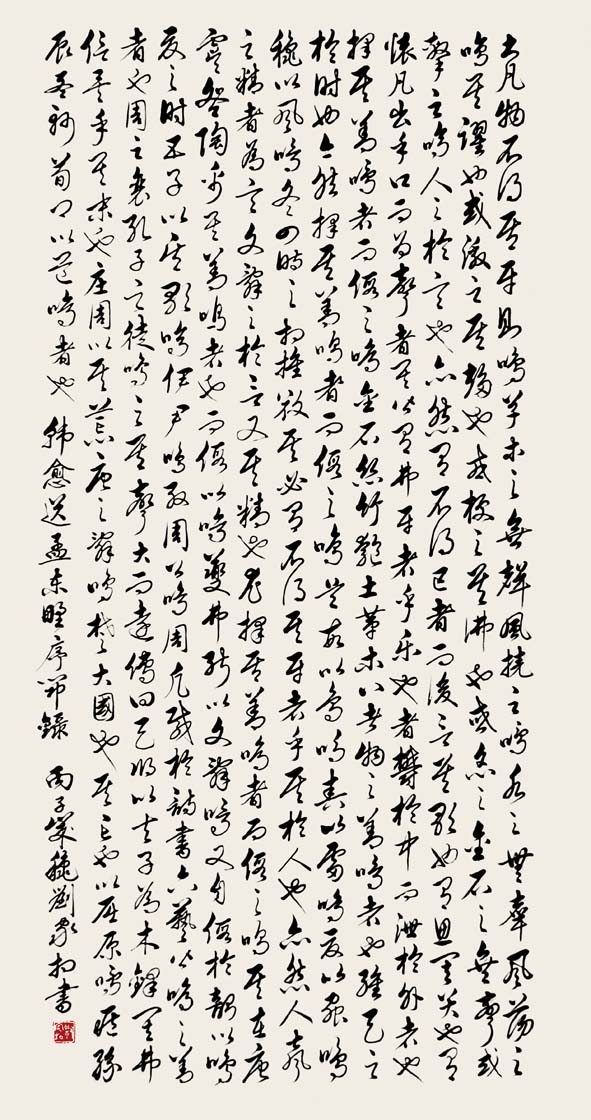 大凡物不得其平則鳴草木之無聲風撓之鳴水之無聲風蕩之
鳴其躍也或激之其趨也或梗之其沸也或炙之金石之無聲或
擊之鳴人之於言也亦然有不得已者而後言其歌也有思其哭也有
懷凡出乎口而為聲者其皆有弗平者乎樂也者鬱於中而泄於外者也
擇其善鳴者而假之鳴金石絲竹匏土革木八者物之善鳴者也維天之
於時也亦然擇其善鳴者而假之鳴是故以鳥鳴春以雷鳴夏以蟲鳴
秋以風鳴冬四時之相推敓其必有不得其平者乎其於人也亦然人聲
之精者為言文辭之於言又其精也尤擇其善鳴者而假之鳴其在唐
虞咎陶禹其善鳴者也而假以鳴夔弗能以文辭鳴又自假於韶以鳴
夏之時五子以其歌鳴伊尹鳴殷周公鳴周凡載於詩書六藝皆鳴之善
者也周之衰孔子之徒鳴之其聲大而遠傳曰天將以夫子為木鐸其弗
信矣乎其末也莊周以其荒唐之辭鳴楚大國也其亡也以屈原鳴臧孫
辰孟軻荀卿以道鳴者也 韓愈送孟東野序節錄 丙子歲秋劉家相書